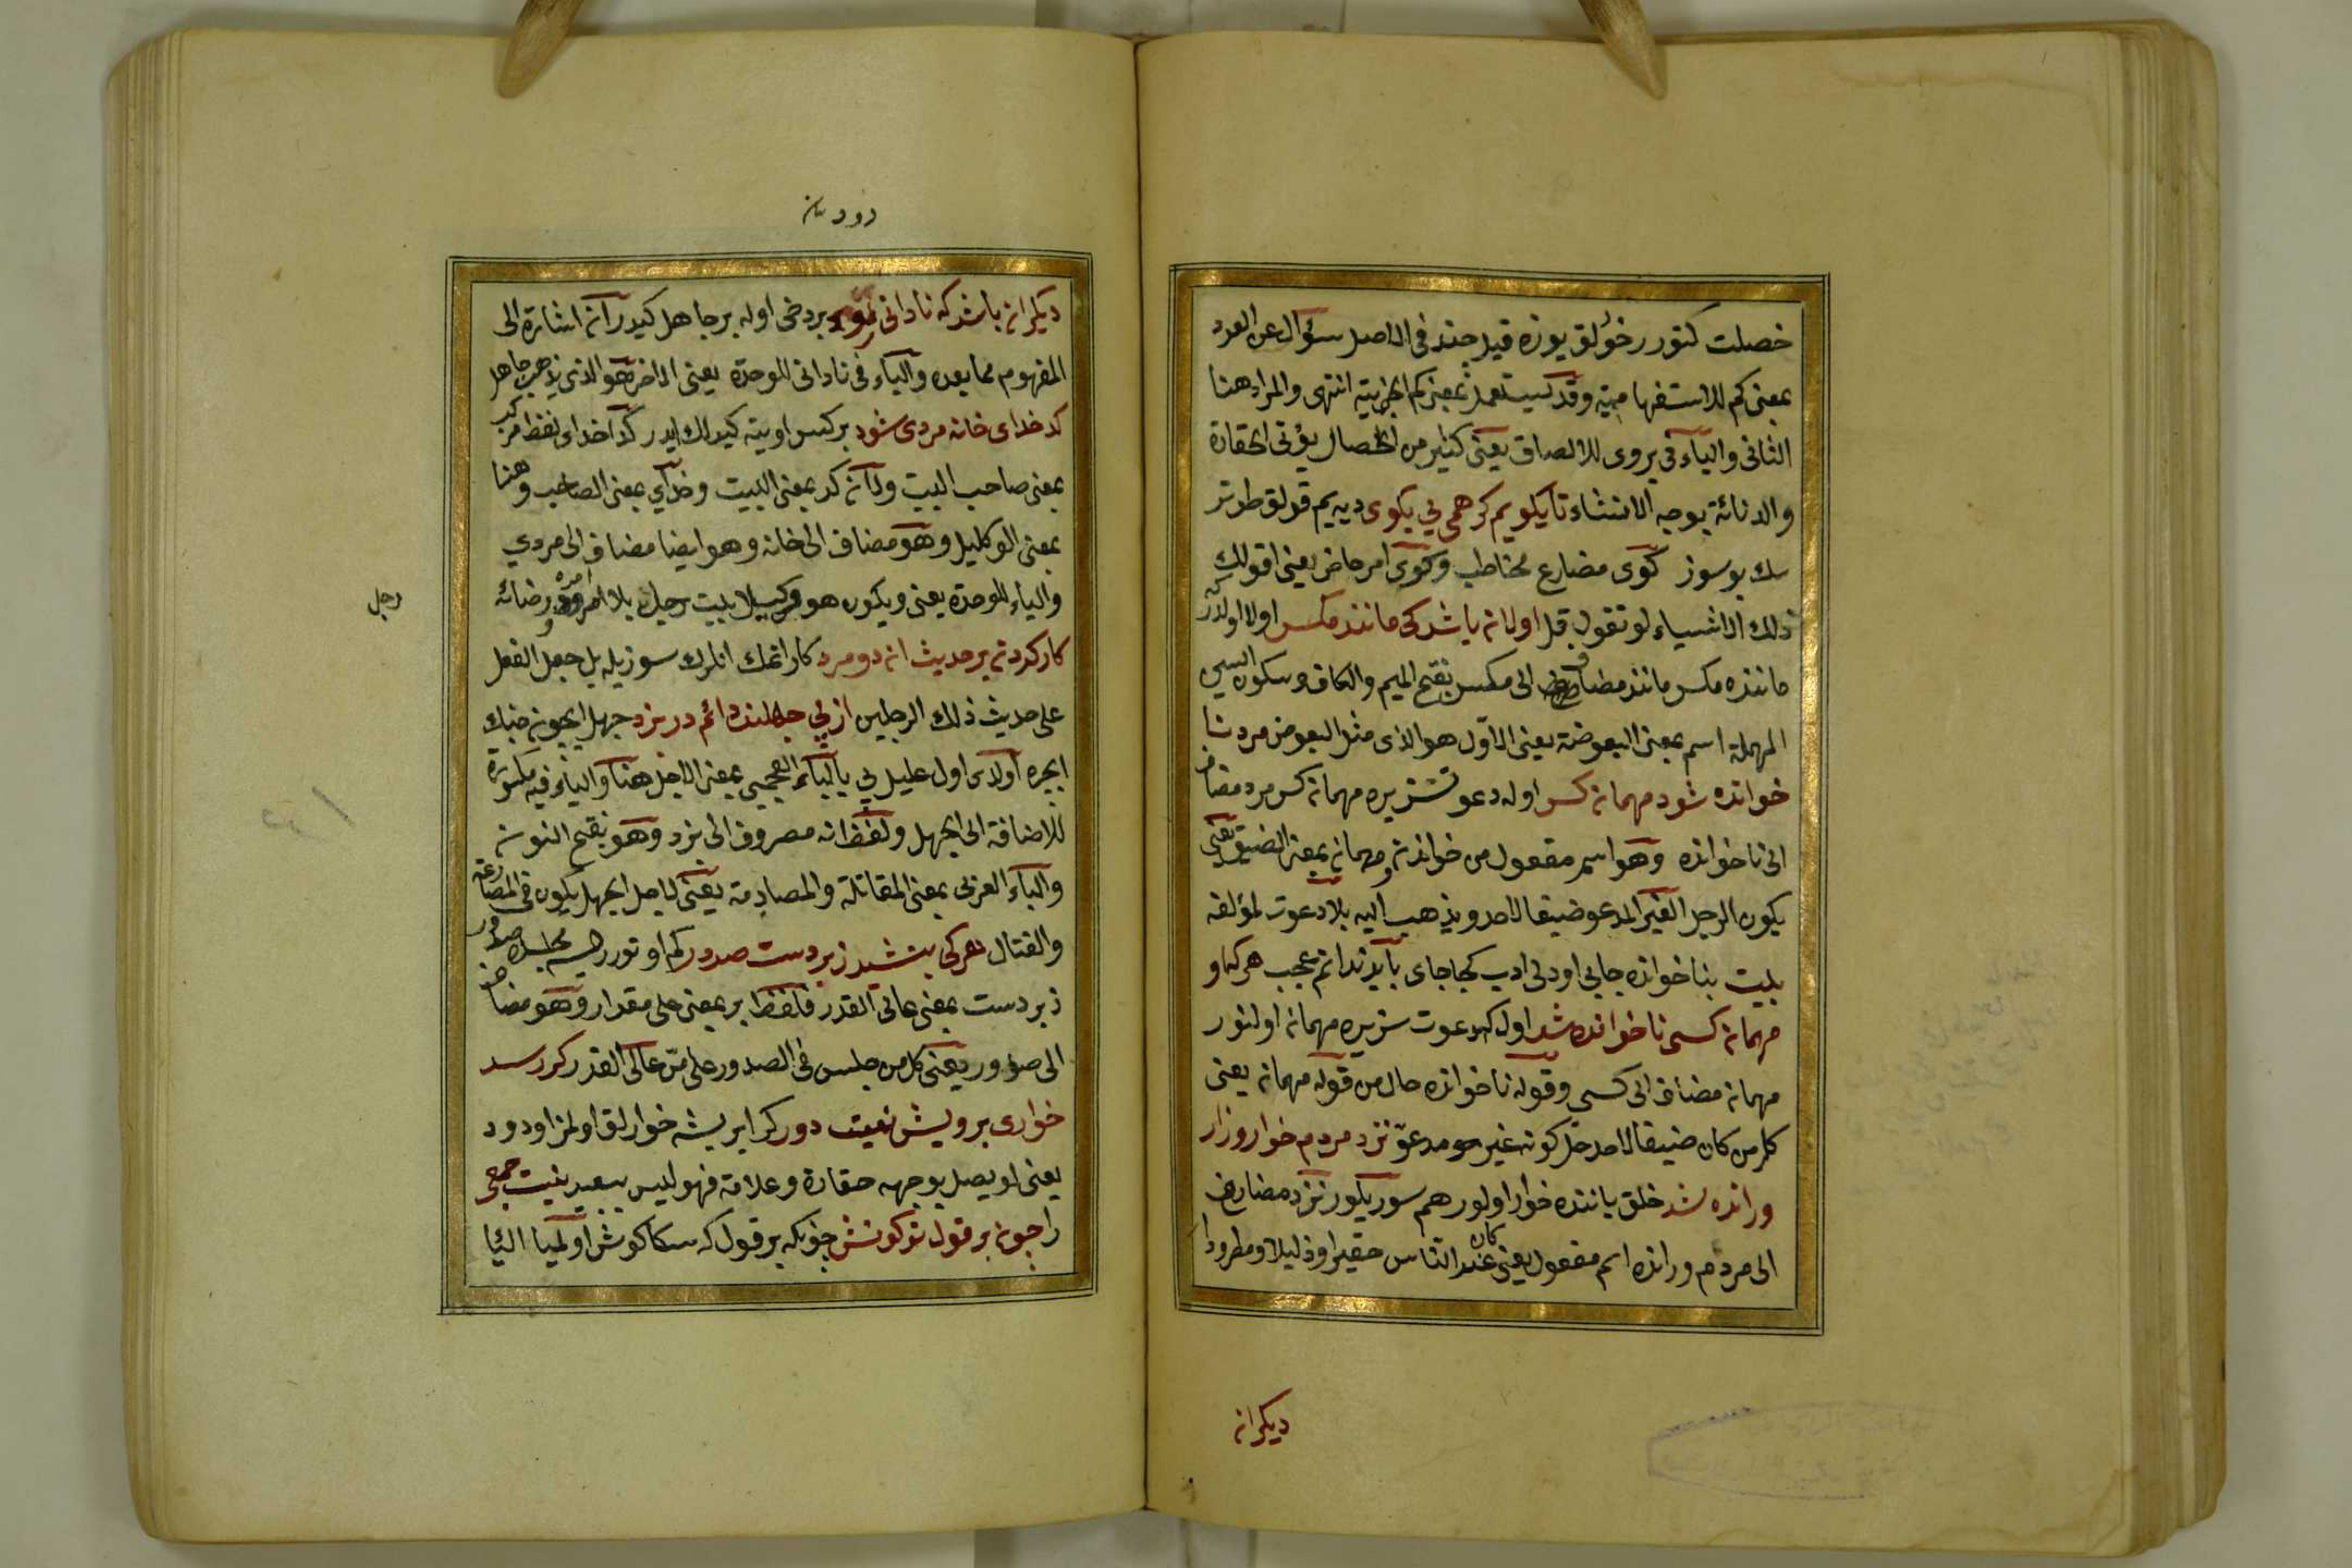 خصلت كتورر خورلق يوزه قيل چند فى الاصل سؤال عن العدد
بمعنى كم للاستفهامية وقد يستعمل بمعنى كم الخبرية انتهى والمراد هنا
الثانى والباء فى بروى للالصاق يعنى كثير من الخصال يؤتى الحقارة
والدنائة بوجه الانشاء تا بكويم كر همى بى بكوى ديه يم قولق طوتر
سك بو سوز كوى مضارع مخاطب وكوى امر حاضر يعنى اقول لك
ذلك الاشياء لو تقول قل اولا نه باشد كى مانند مكس اولا اولدر كه
ماننده مكس مانند مضاف الى مكس بفتح الميم والكاف وسكون السين
المهملة اسم بمعنى البعوضة يعنى الاول هو الذى مثل البعوض مرد نا
خوانده شود مهمان كس اوله دعوتسزيره مهمان كس مرد مضاف
الى ناخوانده وهو اسم مفعول من خواندن ومهمان بمعنى الضيف يعنى
يكون الرجل الغير المدعو ضيفا لاحد ويذهب اليه بلا دعوت لمؤلفه
بيت بنا خوانده جايى اودبى ادب كجا جاى بايد ندانم عجب هر كه او
مهمان كسى ناخوانده شد اول كه دعوت سزيره مهمان اولنور
مهمان مضاف الى كسى وقوله ناخوانده حال من قوله مهمان يعنى
كل من كان ضيفا لاحد حال كونه غير مدعو نزد مردم خوار وزار
ورانده شد خلق ياننده خوار اولور هم سوريلور نزد مضاف
الى مردم ورانده اسم مفعول يعنى كان عند الناس حقيرا وذليلا ومطرودا
ديكرانه
دودنه
ديكر انه باشد كه نادانى رود بر دخى اوله بر جاهل كيدر آنه اشارة الى
المفهوم مما بعده والياء فى نادانى للوحدة يعنى الاخر هو الذى يذهب جاهل
كدخداى خانه مردى شود بر كس اويته كيدك ايدر كدخداى لفظ مركب
بمعنى صاحب البيت ولانه كد بمعنى البيت وخداى بمعنى الصاحب وهنا
بمعنى الوكيل وهو مضاف الى خانه وهو ايضا مضاف الى مردى
والياء للوحدة يعنى ويكون هو وكيلا لبيت رجل بلا امره ورضائه
رجل
كار كردن بر حديث ان دو مرد كار اتمك انلرك سوزيله بل جعل الفعل
على حديث ذلك الرجلين از پى جهلند دائم در نبرد جهل ايچون جنك
ايچره اولدى اول عليل پى بالباء العجمى بمعنى الاجل هنا والياء فيه مكسورة
للاضافة الى الجهل ولفظ انه مصروف الى نبرد وهو بفتح النون
والباء العربى بمعنى المقاتلة والمصادمة يعنى لاجل الجهل يكون فى المصارعة
والقتال هر كى بنشيند زبر دست صدور كم اوتورر ايسه مجلسه صدور
زبر دست بمعنى عالى القدر فلفظ بر بمعنى على مقدار وهو مضاف
الى صدور يعنى كل من جلس فى الصدور على من عالى القدر كر رسد
خوارى برويش نيست دور كر ايريشه خوارلق اولمز او دود
يعنى لو يصل بوجهه حقارة وعلامة فهو ليس ببعيد نيست جمعى
را چون بر قول تو كوش چونكه بر قولكه سكا كوش اولميا الياء